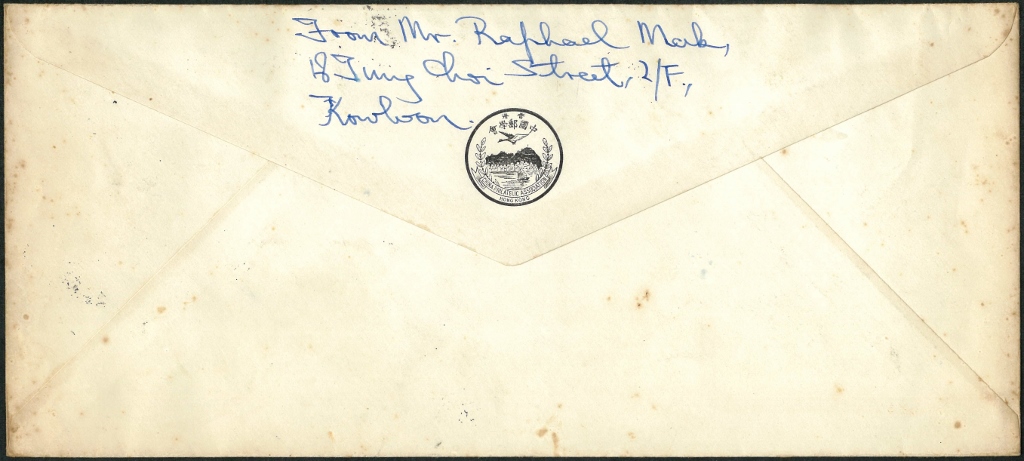 From Mr. Raphael Mak,
18 Tung Choi Street, 2/F.,
Kowloon.
香港
中國郵學會
CHINA PHILATELIC ASSOCIATION
HONG KONG